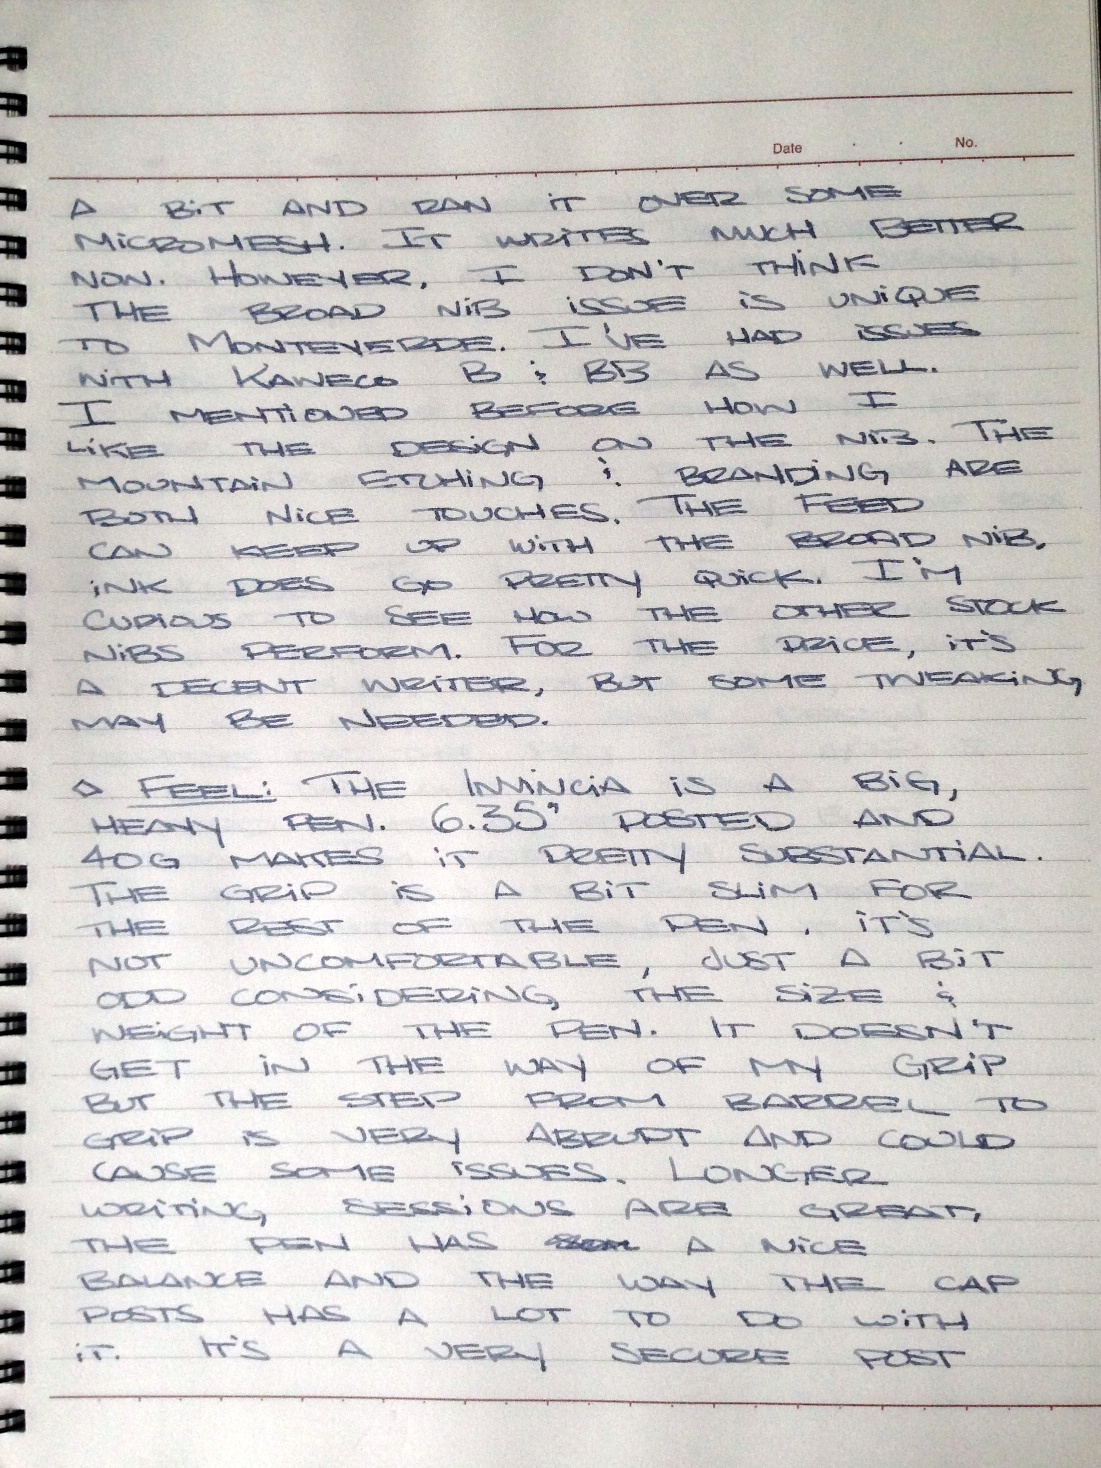 Date . . No.
A BIT AND RAN IT OVER SOME
MICROMESH. IT WRITES MUCH BETTER
NOW. HOWEVER, I DON'T THINK
THE BROAD NIB ISSUE IS UNIQUE
TO MONTEVERDE. I'VE HAD ISSUES
WITH KAWECO B & BB AS WELL.
I MENTIONED BEFORE HOW I
LIKE THE DESIGN ON THE NIB. THE
MOUNTAIN ETCHING & BRANDING ARE
BOTH NICE TOUCHES. THE FEED
CAN KEEP UP WITH THE BROAD NIB,
INK DOES GO PRETTY QUICK. I'M
CURIOUS TO SEE HOW THE OTHER STOCK
NIBS PERFORM. FOR THE PRICE, IT'S
A DECENT WRITER, BUT SOME TWEAKING
MAY BE NEEDED.
◇ FEEL: THE INVINCIA IS A BIG,
HEAVY PEN. 6.35" POSTED AND
40G MAKES IT PRETTY SUBSTANTIAL.
THE GRIP IS A BIT SLIM FOR
THE REST OF THE PEN. IT'S
NOT UNCOMFORTABLE, JUST A BIT
ODD CONSIDERING THE SIZE &
WEIGHT OF THE PEN. IT DOESN'T
GET IN THE WAY OF MY GRIP
BUT THE STEP FROM BARREL TO
GRIP IS VERY ABRUPT AND COULD
CAUSE SOME ISSUES. LONGER
WRITING SESSIONS ARE GREAT,
THE PEN HAS A NICE
BALANCE AND THE WAY THE CAP
POSTS HAS A LOT TO DO WITH
IT. IT'S A VERY SECURE POST